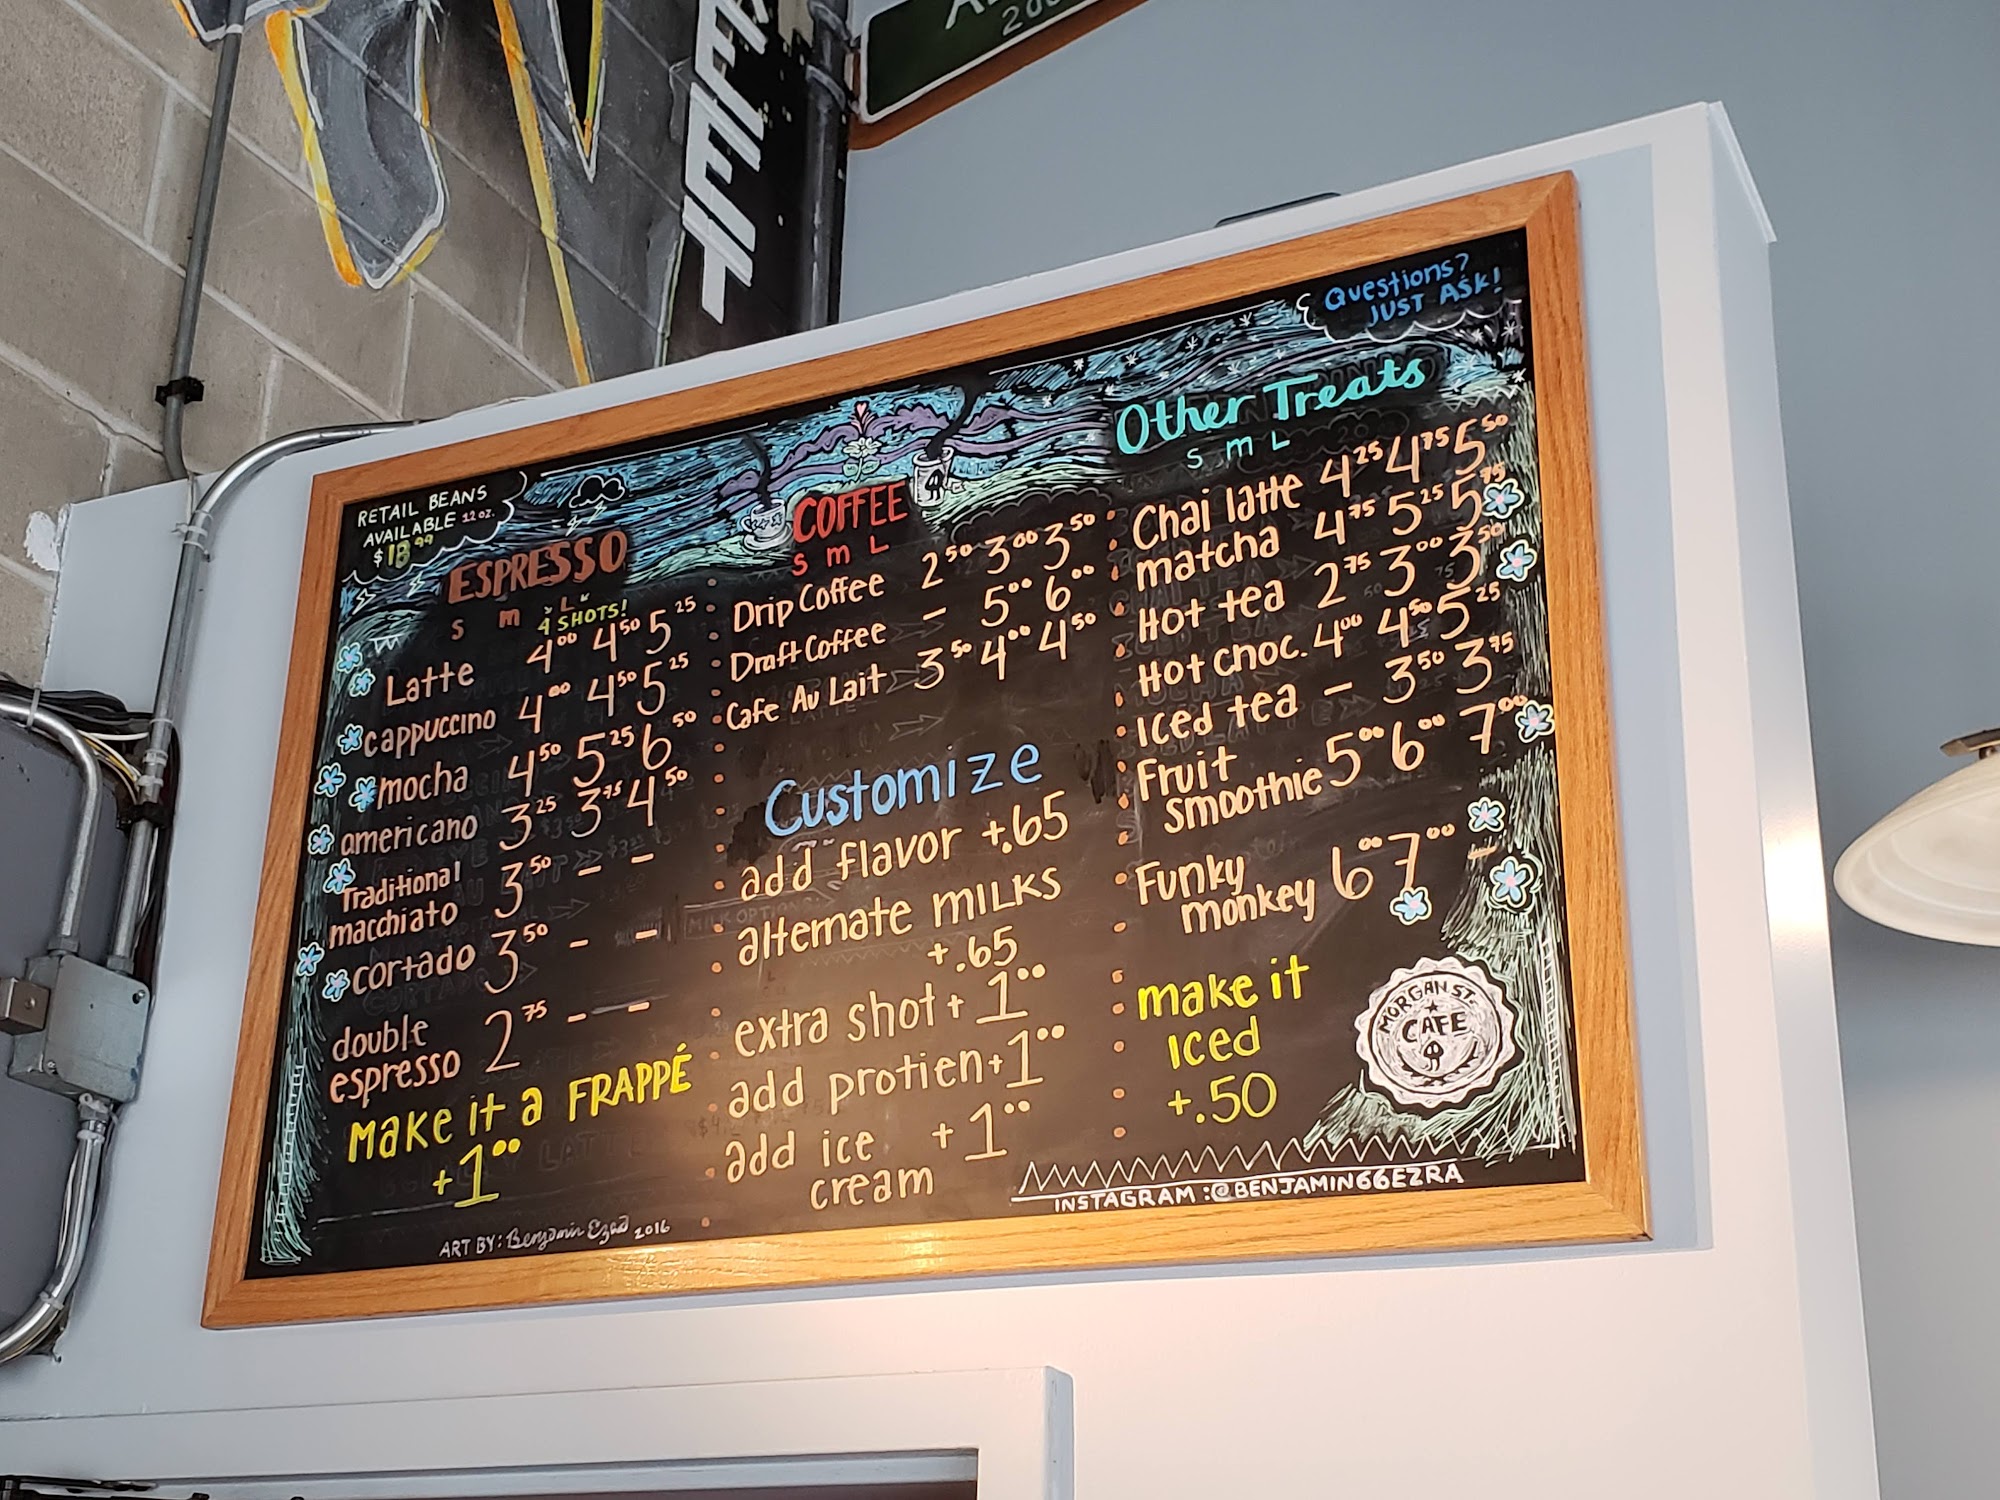 RETAIL BEANS
AVAILABLE 12 oz.
$18.99
ESPRESSO
S m L
4 SHOTS!
Latte 4.00 4.50 5.25
cappuccino 4.00 4.50 5.25
mocha 4.50 5.25 6.50
americano 3.25 3.75 4.50
Traditional
macchiato 3.50 - -
cortado 3.50 - -
double
espresso 2.75 - -
make it a FRAPPÉ
+1.00
ART BY: Benjamin Ezra 2016
COFFEE
S m L
Drip Coffee 2.50 3.00 3.50
Draft Coffee - 5.00 6.00
Cafe Au Lait 3.50 4.00 4.50
Customize
add flavor +.65
alternate MILKS
+.65
extra shot + 1.00
add protien + 1.00
add ice + 1.00
cream
Questions?
JUST ASK!
Other Treats
S m L
Chai latte 4.25 4.75 5.50
matcha 4.75 5.25 5.75
Hot tea 2.75 3.00 3.50
Hot choc. 4.00 4.50 5.25
Iced tea - 3.50 3.75
Fruit
Smoothie 5.00 6.00 7.00
Funky
monkey 6.00 7.00 -
make it
Iced
+.50
MORGAN ST.
CAFE
INSTAGRAM :@BENJAMIN66EZRA